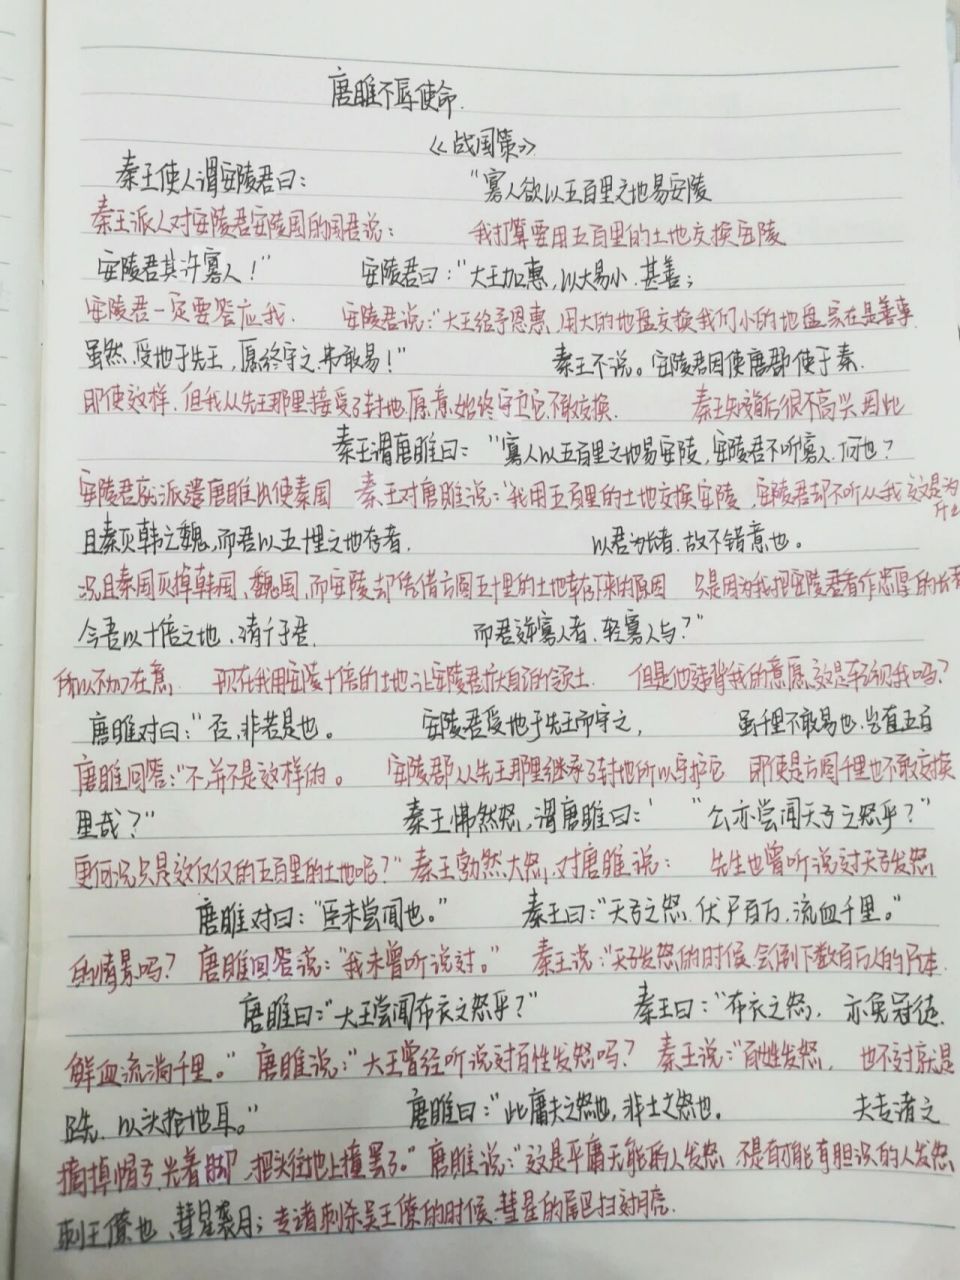 唐雎不辱使命.
《战国策》
秦王使人谓安陵君曰： “寡人欲以五百里之地易安陵
秦王派人对安陵君安陵国的国君说： 我打算要用五百里的土地交换安陵
安陵君其许寡人！” 安陵君曰：“大王加惠，以大易小.甚善；
安陵君一定要答应我. 安陵君说：“大王给予恩惠，用大的地盘交换我们小的地盘实在是善事
虽然.受地于先王，愿终守之.弗敢易！” 秦王不说。安陵君因使唐雎使于秦.
即使这样.但我从先王那里接受了封地.愿意始终守卫它.不敢交换. 秦王知道后很不高兴.因此
秦王谓唐雎曰：“寡人以五百里之地易安陵，安陵君不听寡人.何也？
安陵君就派遣唐雎出使秦国 秦王对唐雎说：“我用五百里的土地交换安陵，安陵君却不听从我这是为什么
且秦灭韩之魏，而君以五十里之地存者， 以君为长者.故不错意也。
况且秦国灭掉韩国、魏国，而安陵却凭借方圆五十里的土地幸存下来的原因 只是因为我把安陵君看作忠厚的长者
今吾以十倍之地，请广于君. 而君逆寡人者，轻寡人与？”
所以不加在意， 现在我用安陵十倍的土地让安陵君扩大自己的领土. 但是他违背我的意愿这是轻视我吗？
唐雎对曰：“否，非若是也。 安陵君受地于先王而守之， 虽千里不敢易也.岂直五百
唐雎回答：“不.并不是这样的。 安陵郡从先王那里继承了封地所以守护它 即使是方圆千里也不敢交换
里哉？” 秦王怫然怒，谓唐雎曰： “公亦尝闻天子之怒乎？”
更何况只是这仅仅的五百里的土地呢？”秦王勃然大怒，对唐雎说： 先生也曾听说过天子发怒
唐雎对曰：“臣未尝闻也。” 秦王曰：“天子之怒.伏尸百万，流血千里。”
的情景吗？ 唐雎回答说：“我未曾听说过。” 秦王说：“天子发怒的时候.会倒下数百万人的尸体.
唐雎曰：“大王尝闻布衣之怒乎？” 秦王曰：“布衣之怒， 亦免冠徒
鲜血流淌千里。” 唐雎说：“大王曾经听说过百性发怒吗？ 秦王说：“百姓发怒， 也不过就是
跣.以头抢地耳。” 唐雎曰：“此庸夫之怒也，非士之怒也。 夫专诸之
摘掉帽子.光着脚.把头往地上撞罢了。”唐雎说：“这是平庸无能的人发怒.不是有才能有胆识的人发怒
刺王僚也、彗星袭月；专诸刺杀吴王僚的时候.彗星的尾巴扫过月亮.